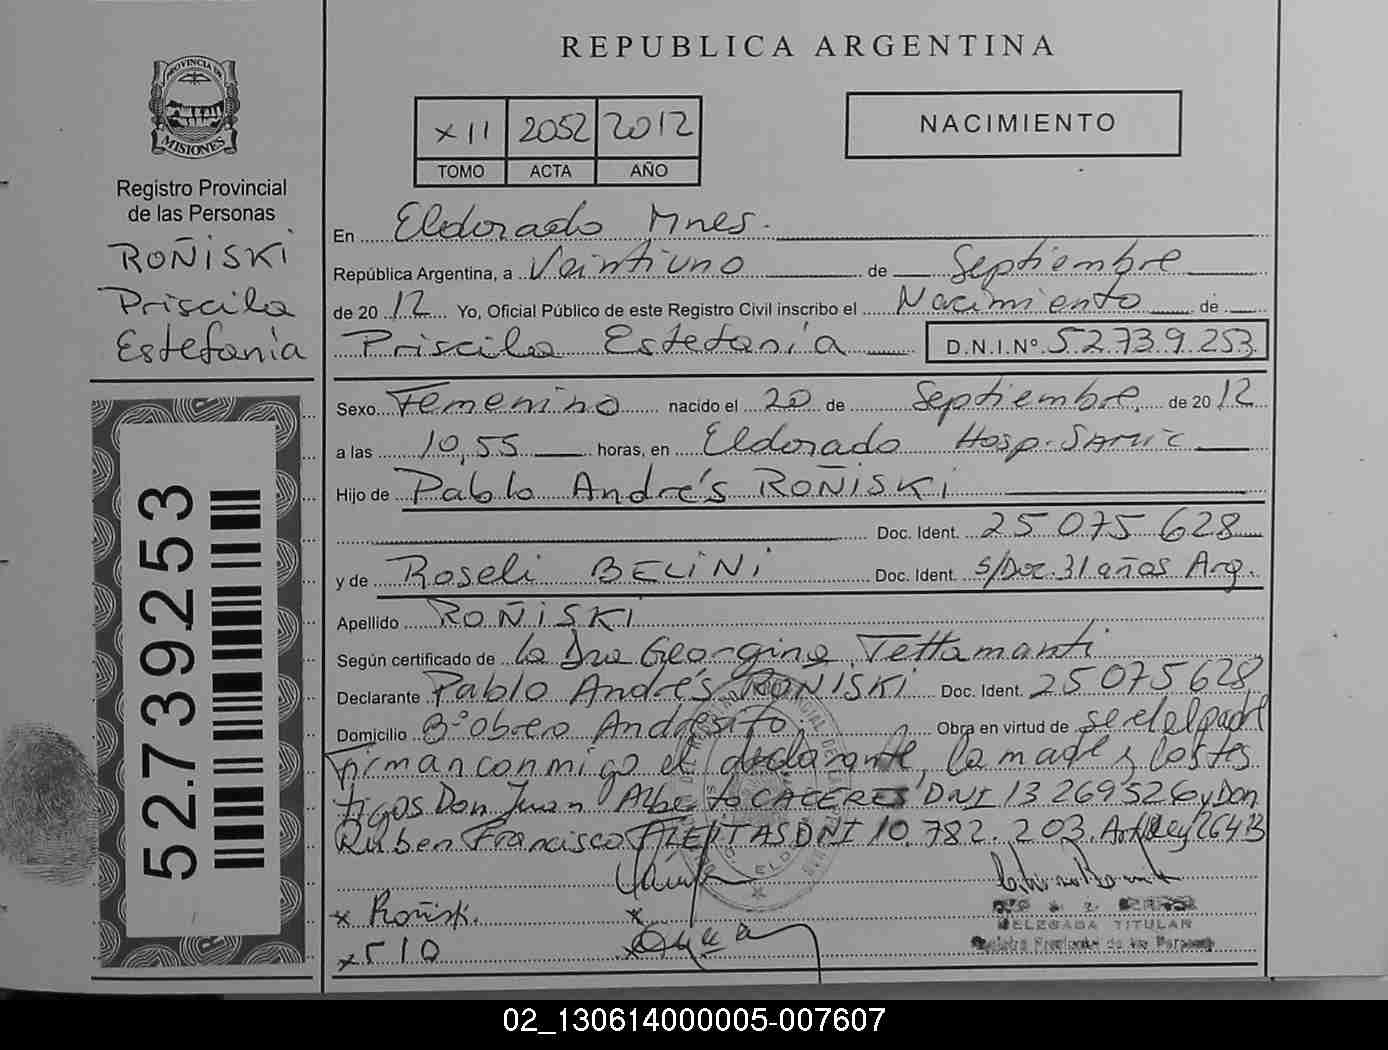 REPUBLICA ARGENTINA
PROVINCIA DE
MISIONES
Registro Provincial
de las Personas
ROÑISKI
Priscila
Estefanía
52.739.253
XII 2052 2012
TOMO ACTA AÑO
NACIMIENTO
En Eldorado Mnes.
República Argentina, a Veintiuno de Septiembre
de 2012 Yo, Oficial Público de este Registro Civil inscribo el Nacimiento de
Priscila Estefanía D.N.I.Nº 52.739.253
Sexo Femenino nacido el 20 de Septiembre de 2012
a las 10,55 horas, en Eldorado Hosp. SAMIC
Hijo de Pablo Andrés ROÑISKI
Doc. Ident. 25 075 628
y de Roseli BELINI Doc. Ident. s/Doc. 31 años Arg.
Apellido ROÑISKI
Según certificado de la Dra Georgina Tettamanti
Declarante Pablo Andrés ROÑISKI Doc. Ident. 25 075 628
Domicilio Bº obrero Andresito Obra en virtud de ser el padre
Firman conmigo el declarante, la madre y los tes
tigos Don Juan Alberto CACERES DNI 13 269 526 y Don
Ruben Francisco DNI 10.782.203. Ley 26413
x Roñiski.
x
x
x
DELEGADA TITULAR
Registro Provincial de las Personas
02_130614000005-007607